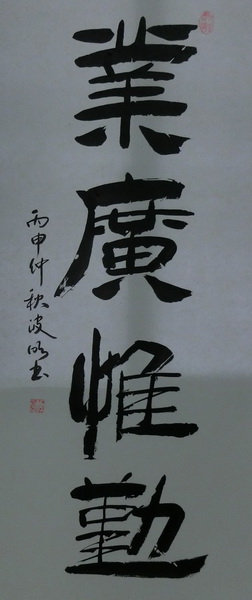 業廣惟勤
丙申仲秋波明书